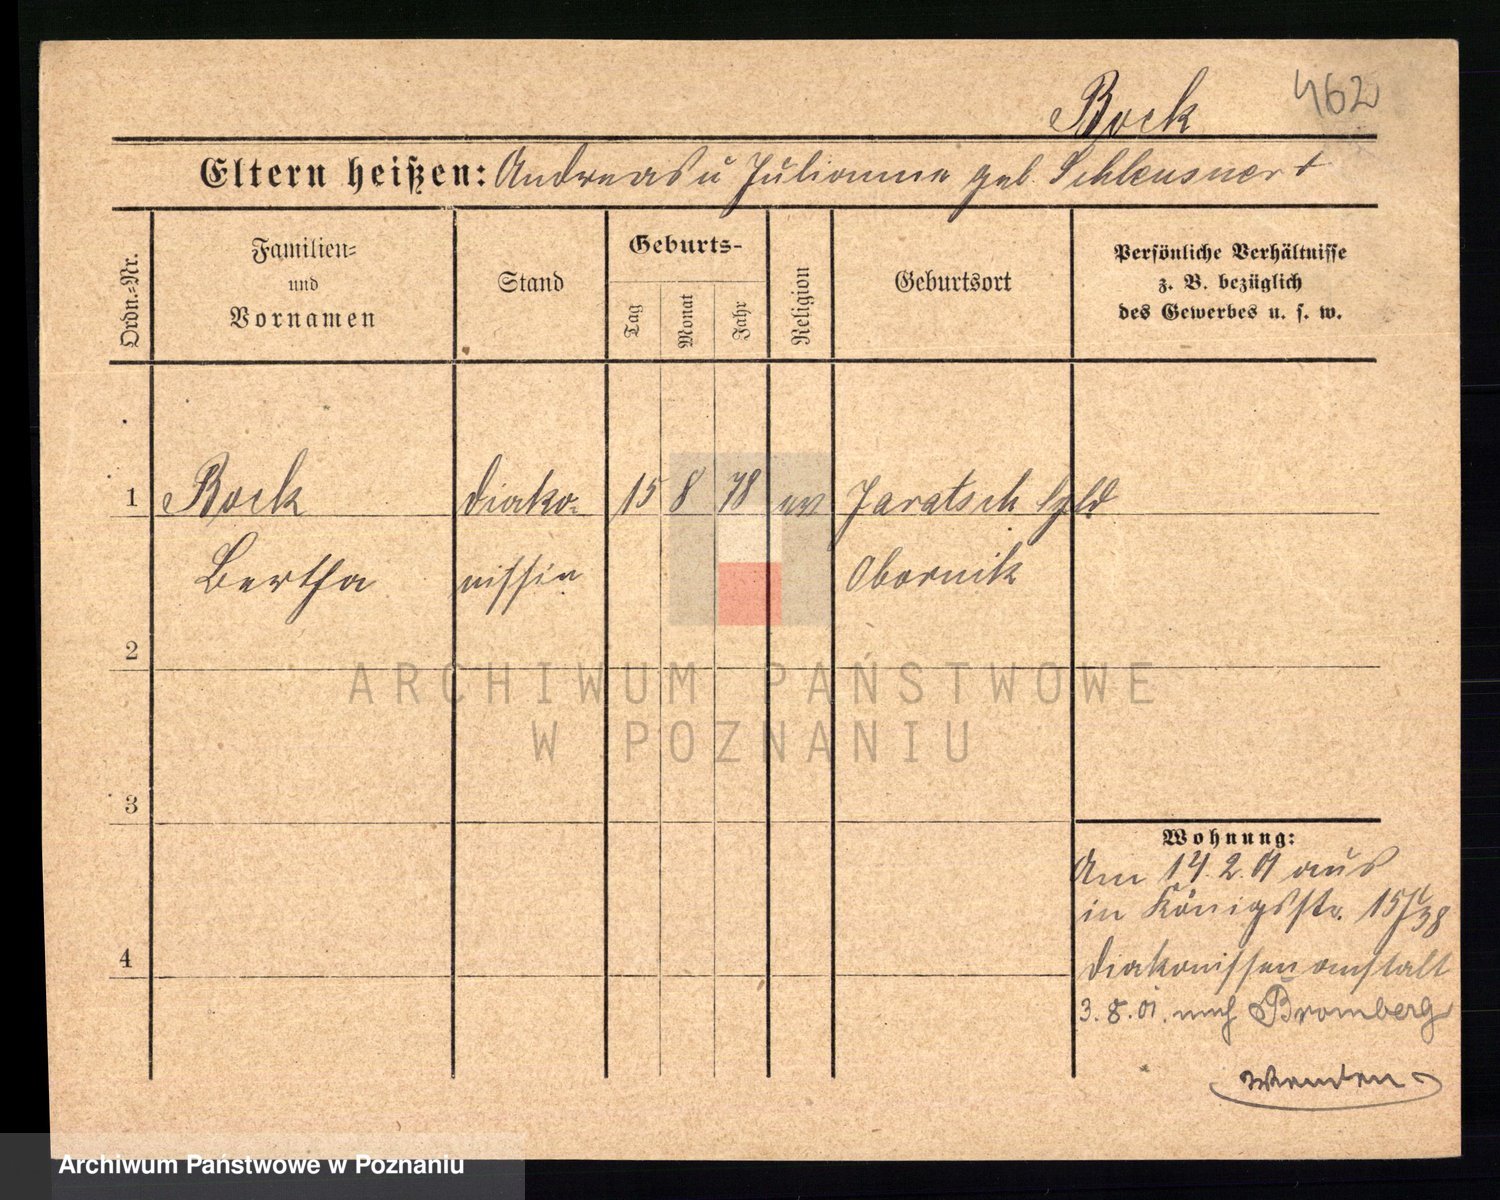 462
Bock
Eltern heißen: Andreas u Julianna geb. Schleusner +
Ordn.-Nr.
Familien-
und
Vornamen
Stand
Geburts-
Tag
Monat
Jahr
Religion
Geburtsort
Persönliche Verhältnisse
z. B. bezüglich
des Gewerbes u. s. w.
1 Bock Diako- 15 8 78 ev Jaratsch
Bertha nissin Obornik
2
3
4
Wohnung:
Am 14. 2. 01 aus
in Königsstr. 15
Diakonissenanstalt
3. 8. 01. nach Bromberg
Wenden
ARCHIWUM PAŃSTWOWE
W POZNANIU
Archiwum Państwowe w Poznaniu